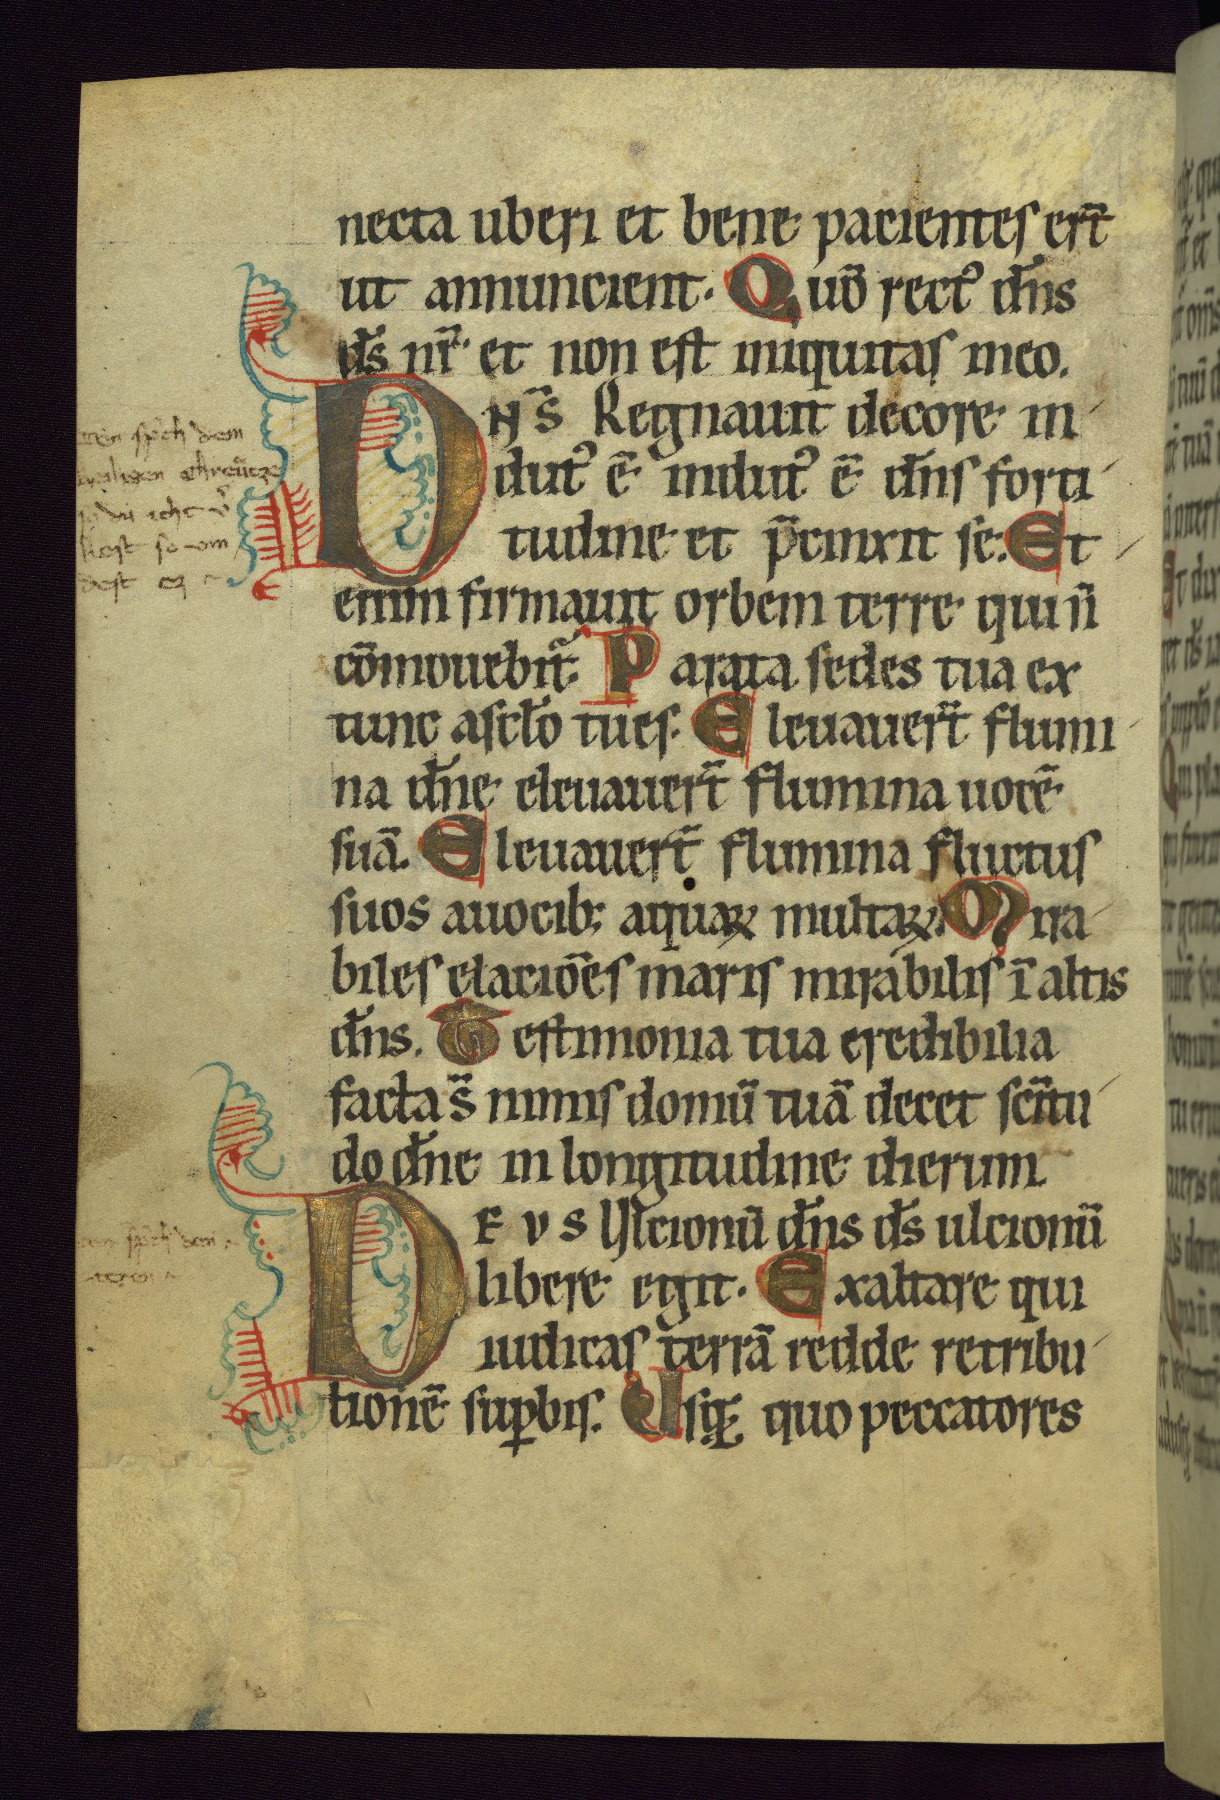 necta uberi et bene pacientes erт̄
ut annuncient. Quō rectꝰ dn̄s
ds̄ nr̄ et non est iniquitas in eo.
DNS̄ Regnauit decore in
dutꝰ ē indutꝰ ē dn̄s forti
tudine et p̄cinxit se. Et
enim firmauit orbem terre qui n̄
cōmouebit᷑. Parata sedes tua ex
tunc a sclo̅ tu es. Eleuauer̄t flumi
na dn̄e eleuauer̄t flumina uocē
suā. Eleuauer̄t flumina fluctus
suos a uocib; aquaꝝ multaꝝ. Mira
biles elaciōes maris mirabilis ī altis
dn̄s. Testimonia tua credibilia
facta s̄ nimis domū tuā decet sc̄itu
do dn̄e in longitudine dierum
DEVS Ulcionū dn̄s ds̄ ulcionū
libere egit. Exaltare qui
iudicas terrā redde retribu
tionē suꝑbis. Usqꝫ quo peccatores
spͨch dem
heiligen chreücze